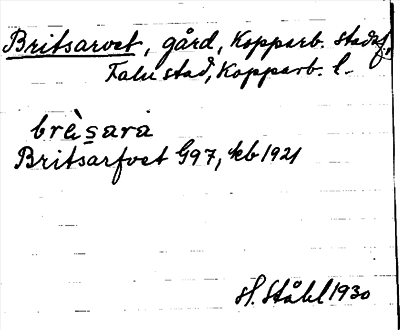 Britsarvet, gård, Kopparb. stadsf.,
Falu stad, Kopparb. l.
brè̀s̲ara
Britsarfvet G97, kb 1921
H. Ståhl 1930